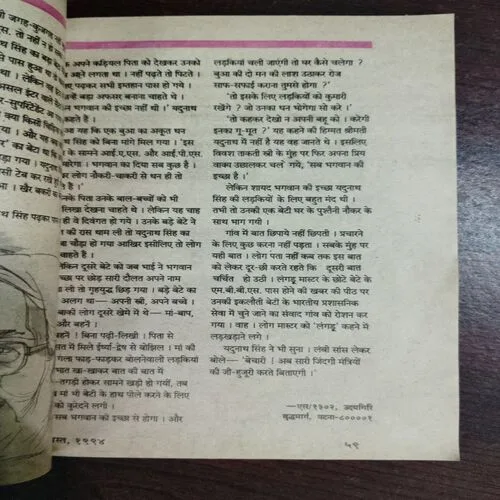 ी जगह-कुजगह
स. तो नहीं न हो
सिंह का बड़ा बे
ने पास हुआ या
था । लेकिन यदु
मिसल इंटर वाले
र-सुपरिंटेंडेंट आ
? क्या किसी चिति
गया । और यह आ
का" का बेटा था कि
ड़ा गया । यदुनाथ
ीसी टेब कर रखे
। खैर बकरा कब
सिंह पढ़कर पाग
के अपने कड़ियल पिता को देखकर उनको
आने लगता था । नहीं पढ़ते तो पिटते ।
पढ़कर सभी इम्तहान पास हो गये ।
उन्हें बड़ा अफसर बनाना चाहते थे ।
भगवान की इच्छा नहीं थी ।' यदुनाथ
कहते हैं ।
आ यह कि एक बुआ का अकूत धन
सिंह को बिना मांगे मिल गया । 'इस
के सामने आई.ए.एस. और आई.पी.एस.
मारेगा । भगवान का दिया सब कुछ है ।
पर लोग नौकरी-चाकरी से धन ही तो
नके पिता उनके बाल-बच्चों को भी
लिखा देखना चाहते थे । लेकिन यह चाह
ही वे दिवंगत हो गये । उनके बड़े बेटे ने
की रास थाम ली तो यदुनाथ सिंह का
चौड़ा हो गया आखिर इसीलिए तो लोग
चाहते हैं ।
लेकिन दूसरे बेटे को जब भाई ने भगवान
पर छोड़ सारी दौलत अपने नाम
ली तो गृहयुद्ध छिड़ गया । बड़े बेटे का
अलग था — अपनी स्त्री, अपने बच्चे ।
बाकी लोग दूसरे खेमे में थे — मां-बाप,
और बहनें ।
बहनें ! बिना पढ़ी-लिखी । पिता से
में मिले ईर्ष्या-द्वेष से बोझिल । मां की
गला फाड़-फाड़कर बोलनेवाली लड़कियां
भात खा-खाकर बात की बात में
-तगड़ी होकर सामने खड़ी हो गयीं, तब
मां भी बेटी के हाथ पीले करने के लिए
को कुरेदने लगी ।
सब भगवान की इच्छा से होगा । और
लड़कियां चली जाएंगी तो घर कैसे चलेगा ?
बुआ की दो मन की लाश उठाकर रोज
साफ-सफाई कराना तुमसे होगा ?'
'तो इसके लिए लड़कियों को कुमारी
रखेंगे ? जो उनका धन भोगेगा सो करे ।'
'तो कहकर देखो न अपनी बहू को । करेगी
इनका गू-मूत ?' यह कहने की हिम्मत श्रीमती
यदुनाथ में नहीं है यह वह जानते थे । इसलिए
विवश ताकती स्त्री के मुंह पर फिर अपना प्रिय
वाक्य उछालकर चले गये, 'सब भगवान की
इच्छा है ।'
लेकिन शायद भगवान की इच्छा यदुनाथ
सिंह की लड़कियों के लिए बहुत मंद थी ।
तभी तो उनकी एक बेटी घर के पुश्तैनी नौकर के
साथ भाग गयी ।
गांव में बात छिपाये नहीं छिपती । प्रचारने
के लिए कुछ करना नहीं पड़ता । सबके मुंह पर
यही बात । लोग पता नहीं कब तक इस बात
को लेकर दूर-छी करते रहते कि दूसरी बात
चर्चित हो उठी । लंगडू मास्टर के छोटे बेटे के
एम.बी.बी.एस. पास होने की खबर की पीठ पर
उनकी इकलौती बेटी के भारतीय प्रशासनिक
सेवा में चुने जाने का संवाद गांव को रोशन कर
गया । वाह । लोग मास्टर को 'लंगडू' कहने में
लड़खड़ाने लगे ।
यदुनाथ सिंह ने भी सुना । लंबी सांस लेकर
बोले— 'बेचारी ! अब सारी जिंदगी मंत्रियों
की जी-हुजूरी करते बिताएगी ।'
—एस/१३०२, उदयगिरि
बुद्धमार्ग, पटना-८००००१
स्त, १९९४
५९